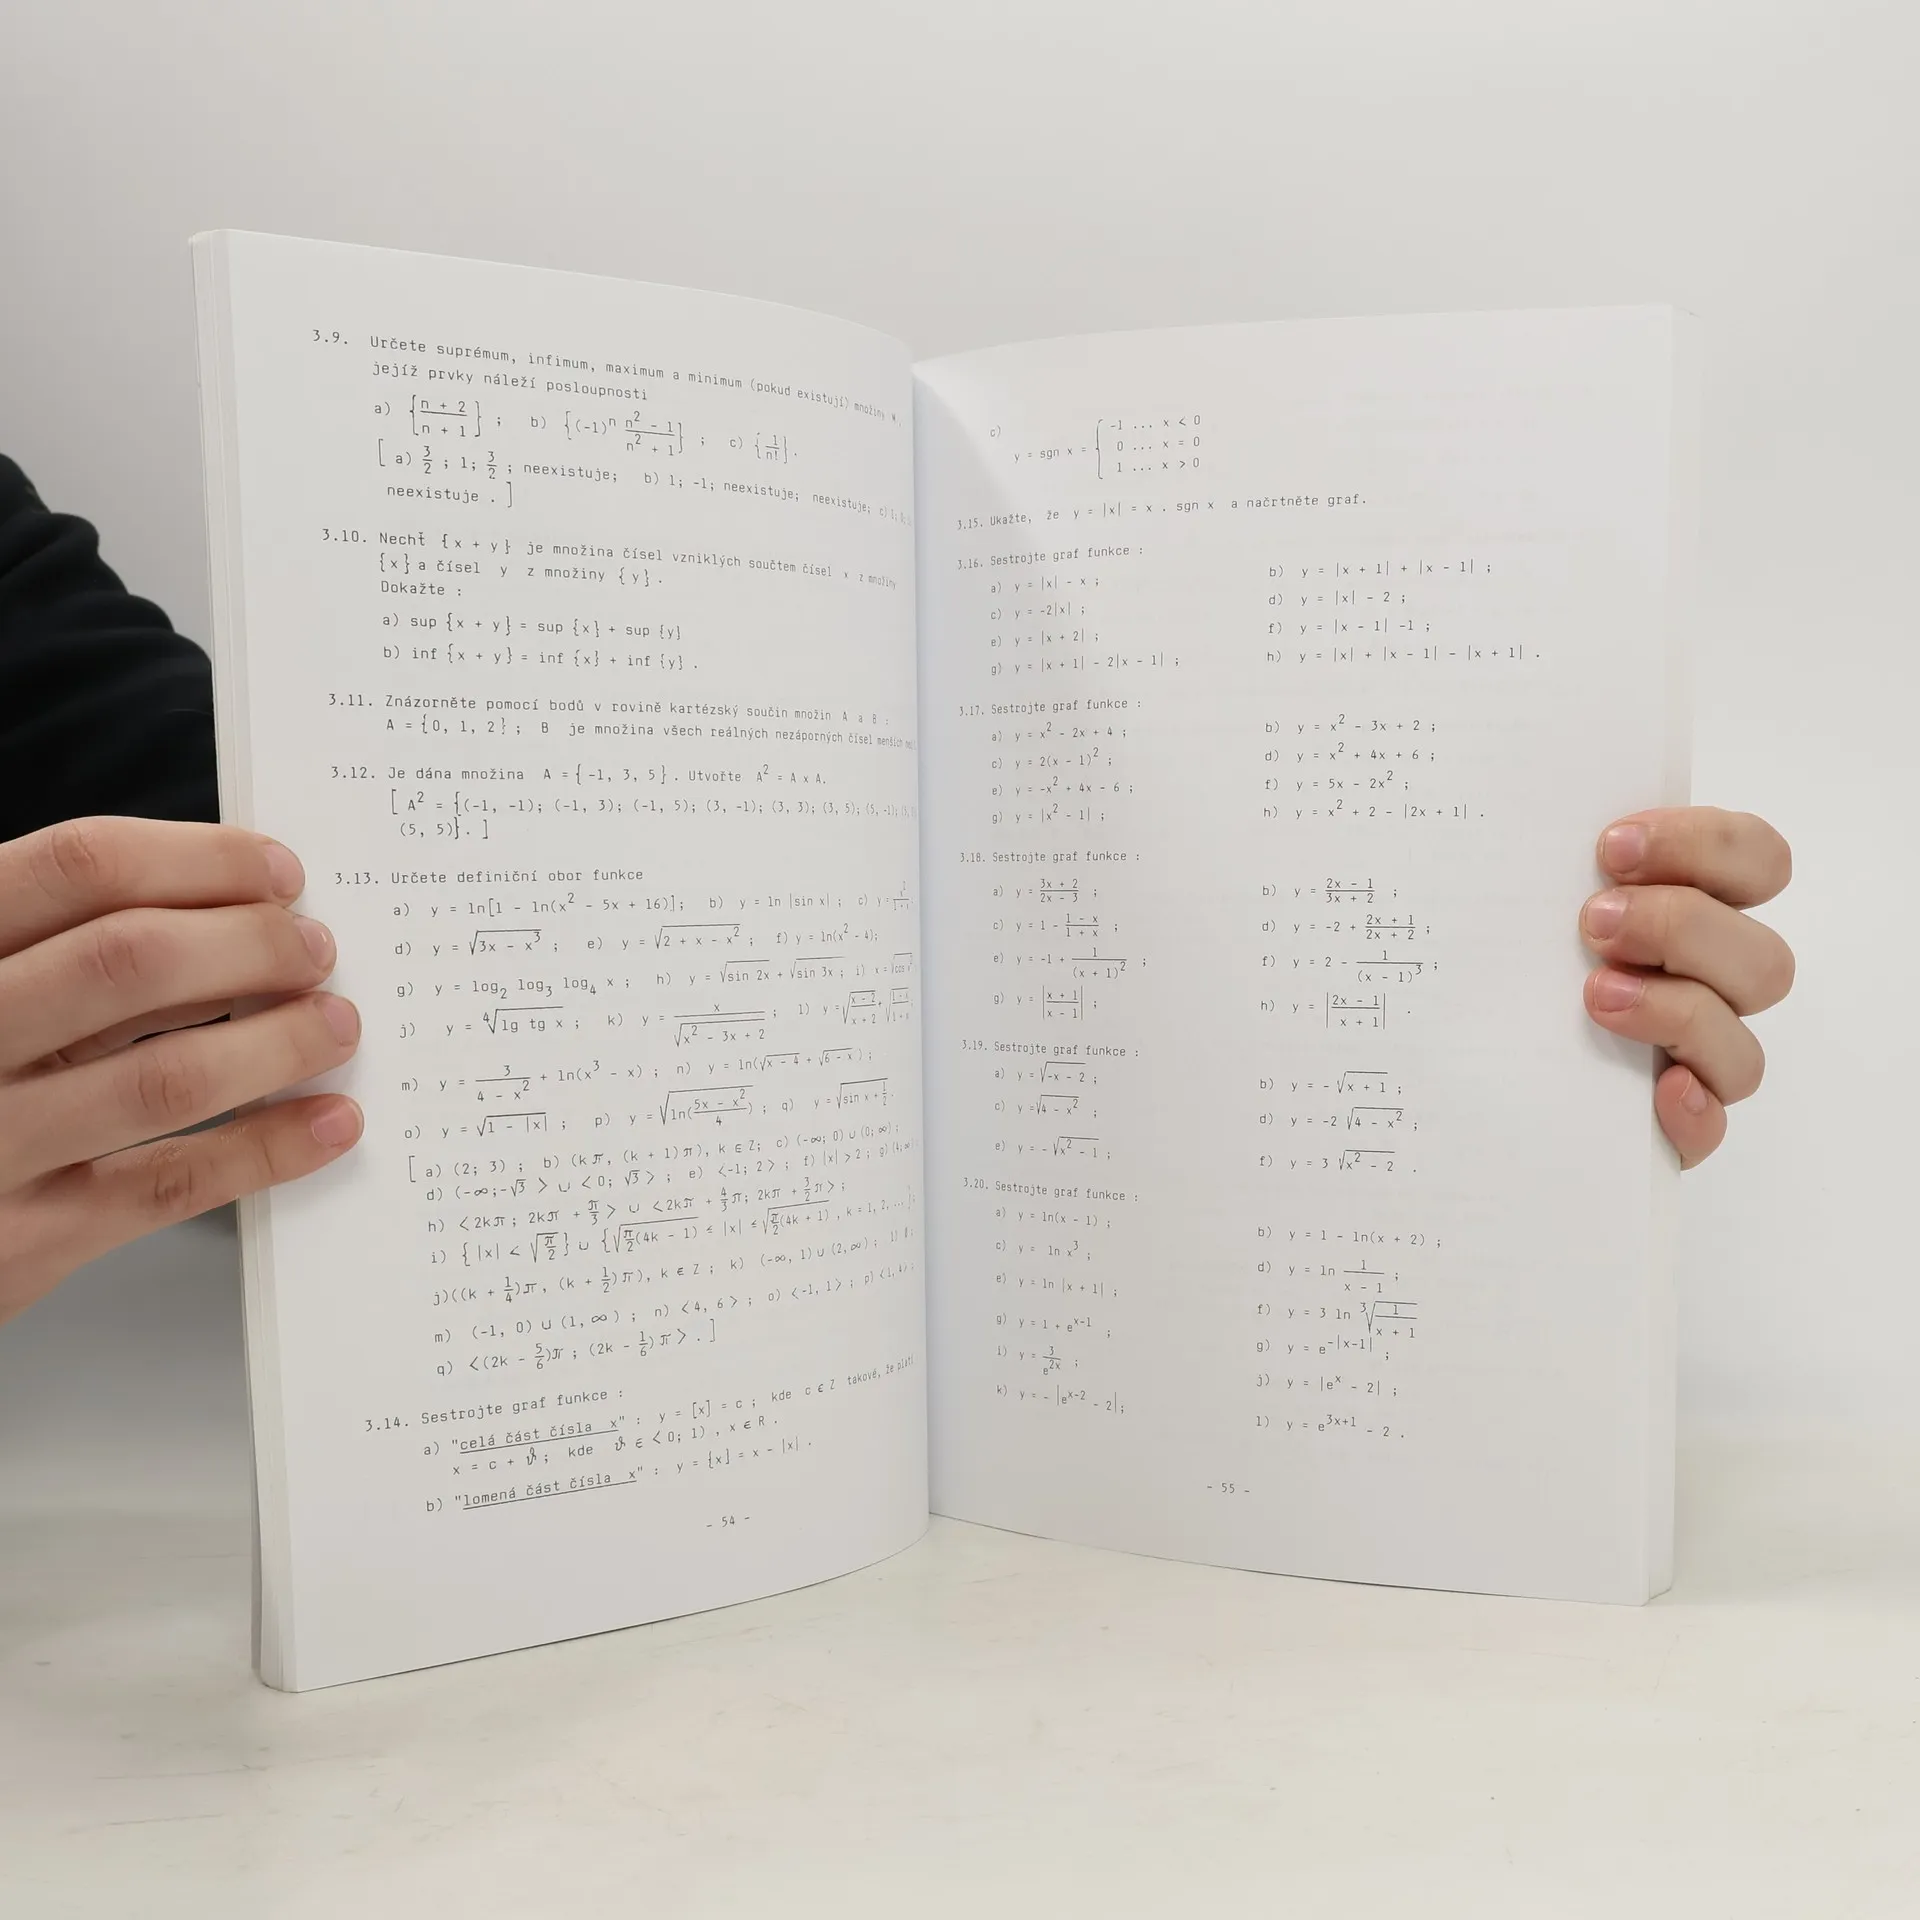 3.9. Určete suprémum, infimum, maximum a minimum (pokud existují) množiny
jejíž prvky náleží posloupnosti
a) {(n + 2)/(n + 1)} ; b) {(-1)ⁿ (n² - 1)/(n² + 1)} ; c) {1/n!}.
[ a) 3/2 ; 1; 3/2 ; neexistuje; b) 1; -1; neexistuje; neexistuje; c)
neexistuje . ]
3.10. Nechť {x + y} je množina čísel vzniklých součtem čísel x z množiny
{x} a čísel y z množiny {y}.
Dokažte :
a) sup {x + y} = sup {x} + sup {y}
b) inf {x + y} = inf {x} + inf {y} .
3.11. Znázorněte pomocí bodů v rovině kartézský součin množin A a B :
A = {0, 1, 2} ; B je množina všech reálných nezáporných čísel menších
3.12. Je dána množina A = {-1, 3, 5} . Utvořte A² = A x A.
[ A² = {(-1, -1); (-1, 3); (-1, 5); (3, -1); (3, 3); (3, 5); (5, -1);
(5, 5)}. ]
3.13. Určete definiční obor funkce
a) y = ln[1 - ln(x² - 5x + 16)]; b) y = ln |sin x| ; c) y =
d) y = √(3x - x³) ; e) y = √(2 + x - x²) ; f) y = ln(x² - 4);
g) y = log₂ log₃ log₄ x ; h) y = √(sin 2x) + √(sin 3x) ; i)
j) y = ⁴√(lg tg x) ; k) y = x/√(x² - 3x + 2) ; l) y = √((x - 2)/(x + 2)) +
m) y = 3/(4 - x²) + ln(x³ - x) ; n) y = ln(√(x - 4) + √(6 - x)) ;
o) y = √(1 - |x|) ; p) y = √(ln((5x - x²)/4)) ; q) y = √(sin x + 1/2) .
[ a) (2; 3) ; b) (kπ, (k + 1)π), k ∈ Z; c) (-∞; 0) ∪ (0; ∞) ;
d) (-∞;-√3 > ∪ <0; √3> ; e) <-1; 2> ; f) |x| > 2 ; g) (4; ∞)
h) <2kπ ; 2kπ + π/3> ∪ <2kπ + 4/3π; 2kπ + 3/2π> ;
i) { |x| < √(π/2) } ∪ {√(π/2(4k - 1)) ≤ |x| ≤ √(π/2(4k + 1)) , k = 1, 2, ...}
j)((k + 1/4)π, (k + 1/2)π), k ∈ Z ; k) (-∞, 1) ∪ (2, ∞) ; l)
m) (-1, 0) ∪ (1, ∞) ; n) <4, 6> ; o) <-1, 1> ; p) <1, 4> ;
q) <(2k - 5/6)π ; (2k - 1/6)π > . ]
3.14. Sestrojte graf funkce :
a) "celá část čísla x" : y = [x] = c ; kde c ∈ Z takové, že platí
x = c + ϑ ; kde ϑ ∈ <0; 1) , x ∈ R .
b) "lomená část čísla x" : y = {x} = x - |x| .
- 54 -
c) y = sgn x = { -1 ... x < 0
0 ... x = 0
1 ... x > 0
3.15. Ukažte, že y = |x| = x . sgn x a načrtněte graf.
3.16. Sestrojte graf funkce :
a) y = |x| - x ; b) y = |x + 1| + |x - 1| ;
c) y = -2|x| ; d) y = |x| - 2 ;
e) y = |x + 2| ; f) y = |x - 1| -1 ;
g) y = |x + 1| - 2|x - 1| ; h) y = |x| + |x - 1| - |x + 1| .
3.17. Sestrojte graf funkce :
a) y = x² - 2x + 4 ; b) y = x² - 3x + 2 ;
c) y = 2(x - 1)² ; d) y = x² + 4x + 6 ;
e) y = -x² + 4x - 6 ; f) y = 5x - 2x² ;
g) y = |x² - 1| ; h) y = x² + 2 - |2x + 1| .
3.18. Sestrojte graf funkce :
a) y = (3x + 2)/(2x - 3) ; b) y = (2x - 1)/(3x + 2) ;
c) y = 1 - (1 - x)/(1 + x) ; d) y = -2 + (2x + 1)/(2x + 2) ;
e) y = -1 + 1/(x + 1)² ; f) y = 2 - 1/(x - 1)³ ;
g) y = |(x + 1)/(x - 1)| ; h) y = |(2x - 1)/(x + 1)| .
3.19. Sestrojte graf funkce :
a) y = √(-x - 2) ; b) y = - √(x + 1) ;
c) y = √(4 - x²) ; d) y = -2 √(4 - x²) ;
e) y = - √(x² - 1) ; f) y = 3 √(x² - 2) .
3.20. Sestrojte graf funkce :
a) y = ln(x - 1) ; b) y = 1 - ln(x + 2) ;
c) y = ln x³ ; d) y = ln 1/(x - 1) ;
e) y = ln |x + 1| ; f) y = 3 ln ³√(1/(x + 1))
g) y = 1 + e^(x-1) ; g) y = e^(-|x-1|) ;
i) y = 3/e^(2x) ; j) y = |eˣ - 2| ;
k) y = - |e^(x-2) - 2|; l) y = e^(3x+1) - 2 .
- 55 -